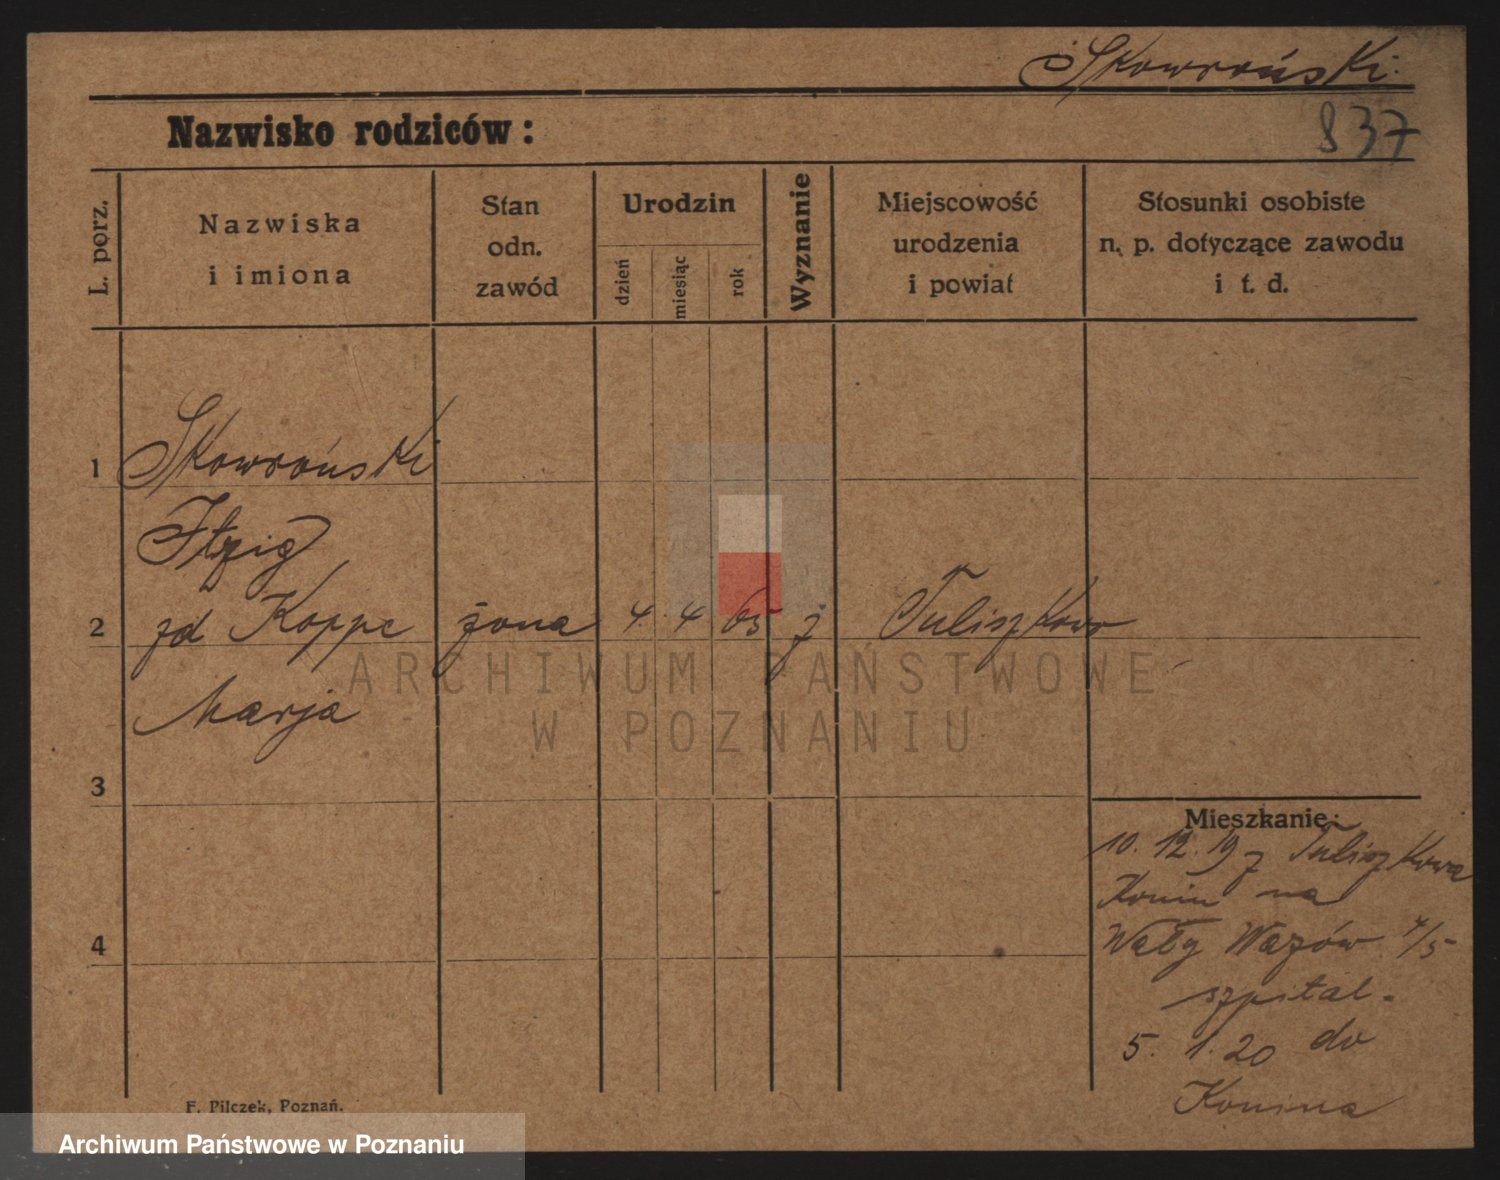 Skowroński.
Nazwisko rodziców:
837
L. porz.
Nazwiska
i imiona
Stan
odn.
zawód
Urodzin
dzień
miesiąc
rok
Wyznanie
Miejscowość
urodzenia
i powiat
Stosunki osobiste
n. p. dotyczące zawodu
i t. d.
1 Skowroński
Itzig
2 zd Koppe żona 4. 4 65 ż Tuliszkowo
Marja
3
4
Mieszkanie:
10. 12. 19 z Tuliszkowa
Konin na
Wały Wazów 4/5
szpital.
5. 1. 20 do
Konina
F. Pilczek, Poznań.
ARCHIWUM PAŃSTWOWE
W POZNANIU
Archiwum Państwowe w Poznaniu